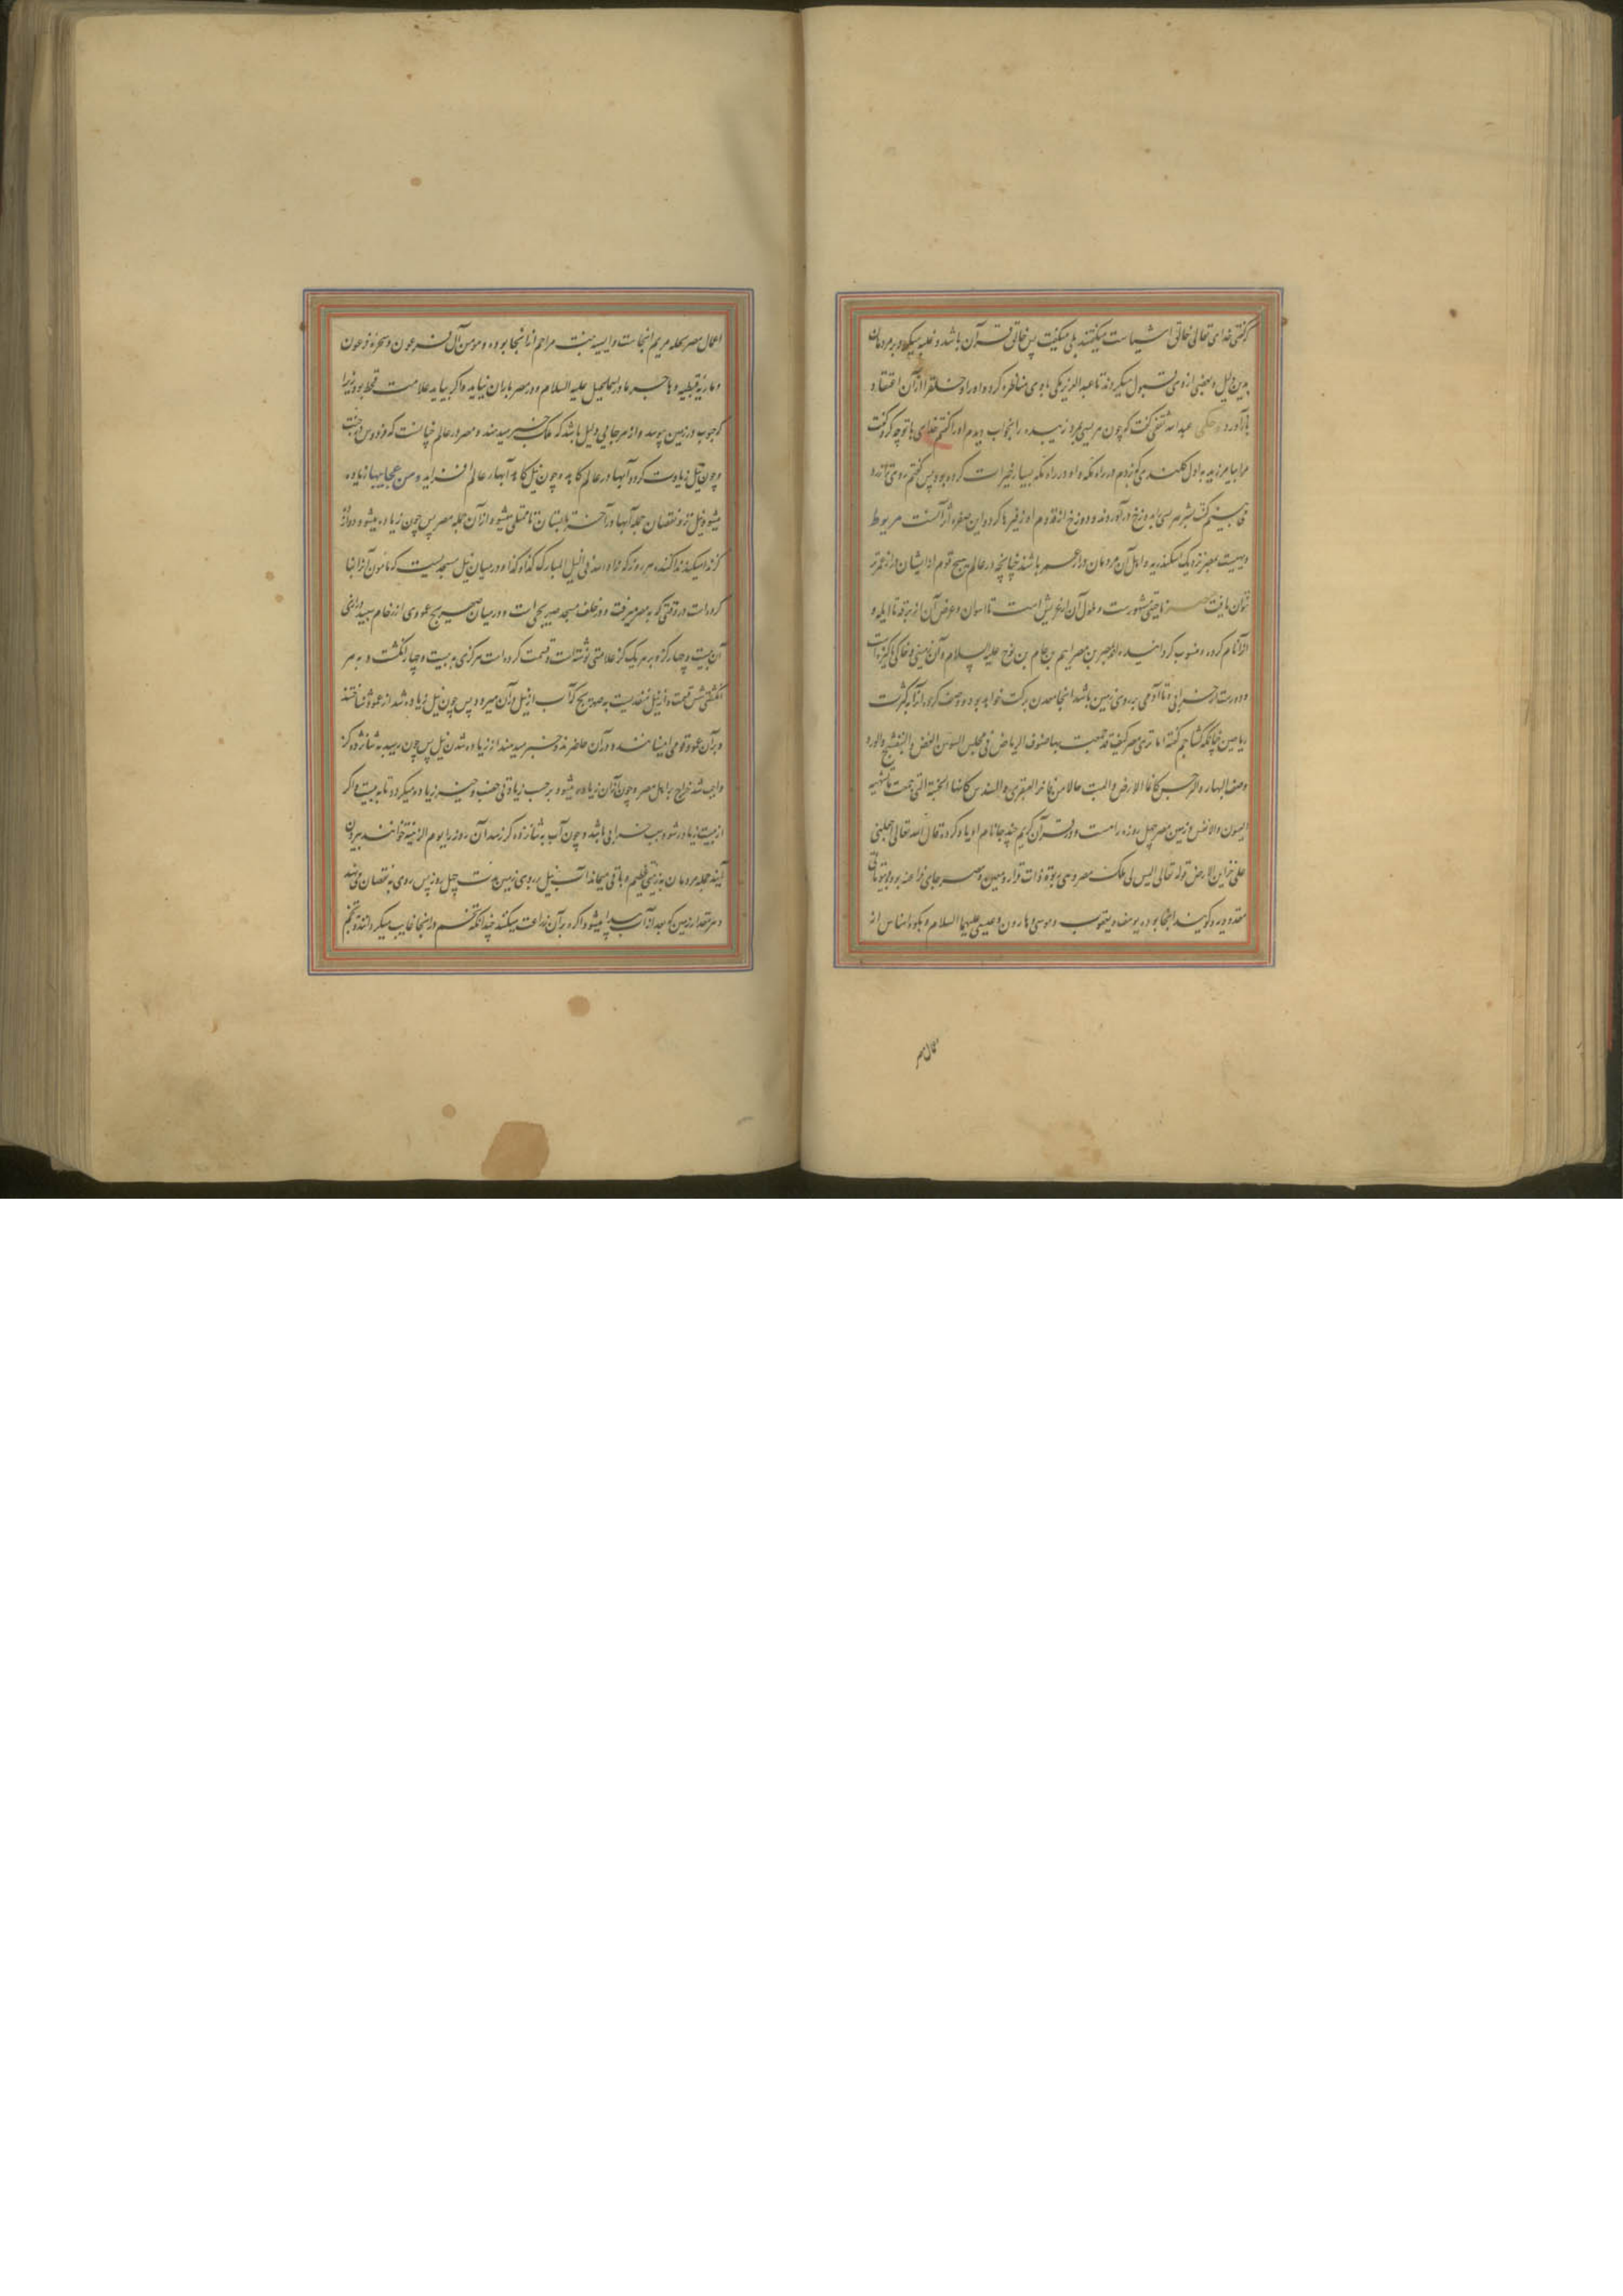 که گفتی خدای تعالی خالق اشیاست میگفتند بلی میگفت پس خالق قرآن باشد و غلبه میکرد بر مردمان
بدین دلیل و بعضی از وی قبول میکردند تا عبدالعزیز مکی با وی مناظره کرد و او را و خلق را از آن اعتقاد
باز آورد و حکی عبدالله ثقفی گفت که چون مریسی بمرد زبیده را بخواب دیدم او را گفتم خدای با تو چه کرد گفت
مرا بیامرزید به اول کلندی که زدم در راه مکه و او در راه مکه بسیار خیرات کرده بود پس گفتم روی ترا زرد
می بینم گفت بشر مریسی را بدوزخ در آوردند و دوزخ از قدوم او زفیرها کرد و این صفره اثر آنست مریوط
دیهیست بمصر نزدیک سکندریه و اهل آن مردمان دراز عمر باشند چنانچه در عالم هیچ قوم از ایشان دراز عمرتر
نتوان یافت مصر ناحیتی مشهورست و طول آن از عریش است تا اسوان و عرض آن از برقه تا ایله و
آنرا نام کرده و منسوب کرد انیده اند بمصر بن مصرایم بن حام بن نوح علیه السلام و آن زمینی و خاکی پاکیزه است
و دورست از خرابی و تا آدمی بر روی زمین باشد اینجا معدن برکت خواهد بود و وصف کرده اند آنرا بکثرت
ریاحین چنانکه کشاجم گفته اما تری مصر کیف قد جمعت بها صنوف الریاض فی مجلس السوسن الغض و البنفسج و الورد
وصف البهار و النرجس کانما الارض البست حللا من فاخر العبقری و السندس کانها الجنة التی جمعت ما تشتهیه
العیون و الانفس و زمین مصر چهل روزه راهست و در قرآن کریم چند جا نام او یاد کرده قال الله تعالی اجعلنی
علی خزاین الارض قوله تعالی الیس لی ملک مصر وهی ربوة ذات قرار و معین و مصر جای فراعنه بوده
و گویند اینجا بوده یوسف و یعقوب و موسی و هارون و عیسی علیهما السلام و
کمال مصر
اعمال مصر نخله مریم اینجاست و آسیه بنت مزاحم از اینجا بوده و مومن آل فرعون و سحره فرعون
و ماریه قبطیه و هاجر مادر اسماعیل علیه السلام و در مصر باران نیاید و اگر بیاید علامت قحط بود زیرا
که حبوب در زمین بپوسد و از هر جایی دلیل باشد که ملک خبر میدهند و مصر در عالم چنانست که فردوس در جنت
و چون نیل زیادت گردد آبها در عالم کاهد و چون نیل کاهد آبهاء عالم افزاید و من عجایبها زیاده
میشود نیل نزد نقصان جمله آبها در آخر تابستان تا ممتلی میشود از آن جمله مصر پس چون زیاده میشود دوازده
گز ندا میکنند ندا کننده هر روز که زاد الله فی النیل المبارک کذا و کذا و در میان نیل مسجدیست که مامون آنرا بنا
کرده است در وقتی که به مصر میرفت و در خلف مسجد صهریجی است و در میان صهریج عمودی از رخام سپید درازی
آن بیست و چهار گز و بر هر یک گز علامتی نوشته است و قسمت کرده است هر گزی به بیست و چهار انگشت و به هر
انگشتی شش قسمت و از نیل منفذیست به صهریج که آب از نیل در آن میرود پس چون نیل زیاده شد از عمود شناختند
و بر آن عمود قومی امینانند و در آن حاضرند و خبر میدهند از زیاده شدن نیل پس چون برسید به شانزده گز
واجب شد خراج بر اهل مصر و چون از آن زیاده میشود بر حسب زیادتی خصب و خیر زیاده میگردد تا به بیست و اگر
از بیست زیادت شود سبب خرابی باشد و چون آب به شانزده گز رسد آن روز را یوم الزینة خوانند بیرون
آیند جمله مردمان به زینتی عظیم و باقی میماند آب نیل بر روی زمین مدت چهل روز پس روی به نقصان می نهد
و هر مقدار زمین که بعد از آب پیدا میشود اکره بر آن زراعت میکنند چندانکه تخم در اینجا غایب میگردانند و تخم